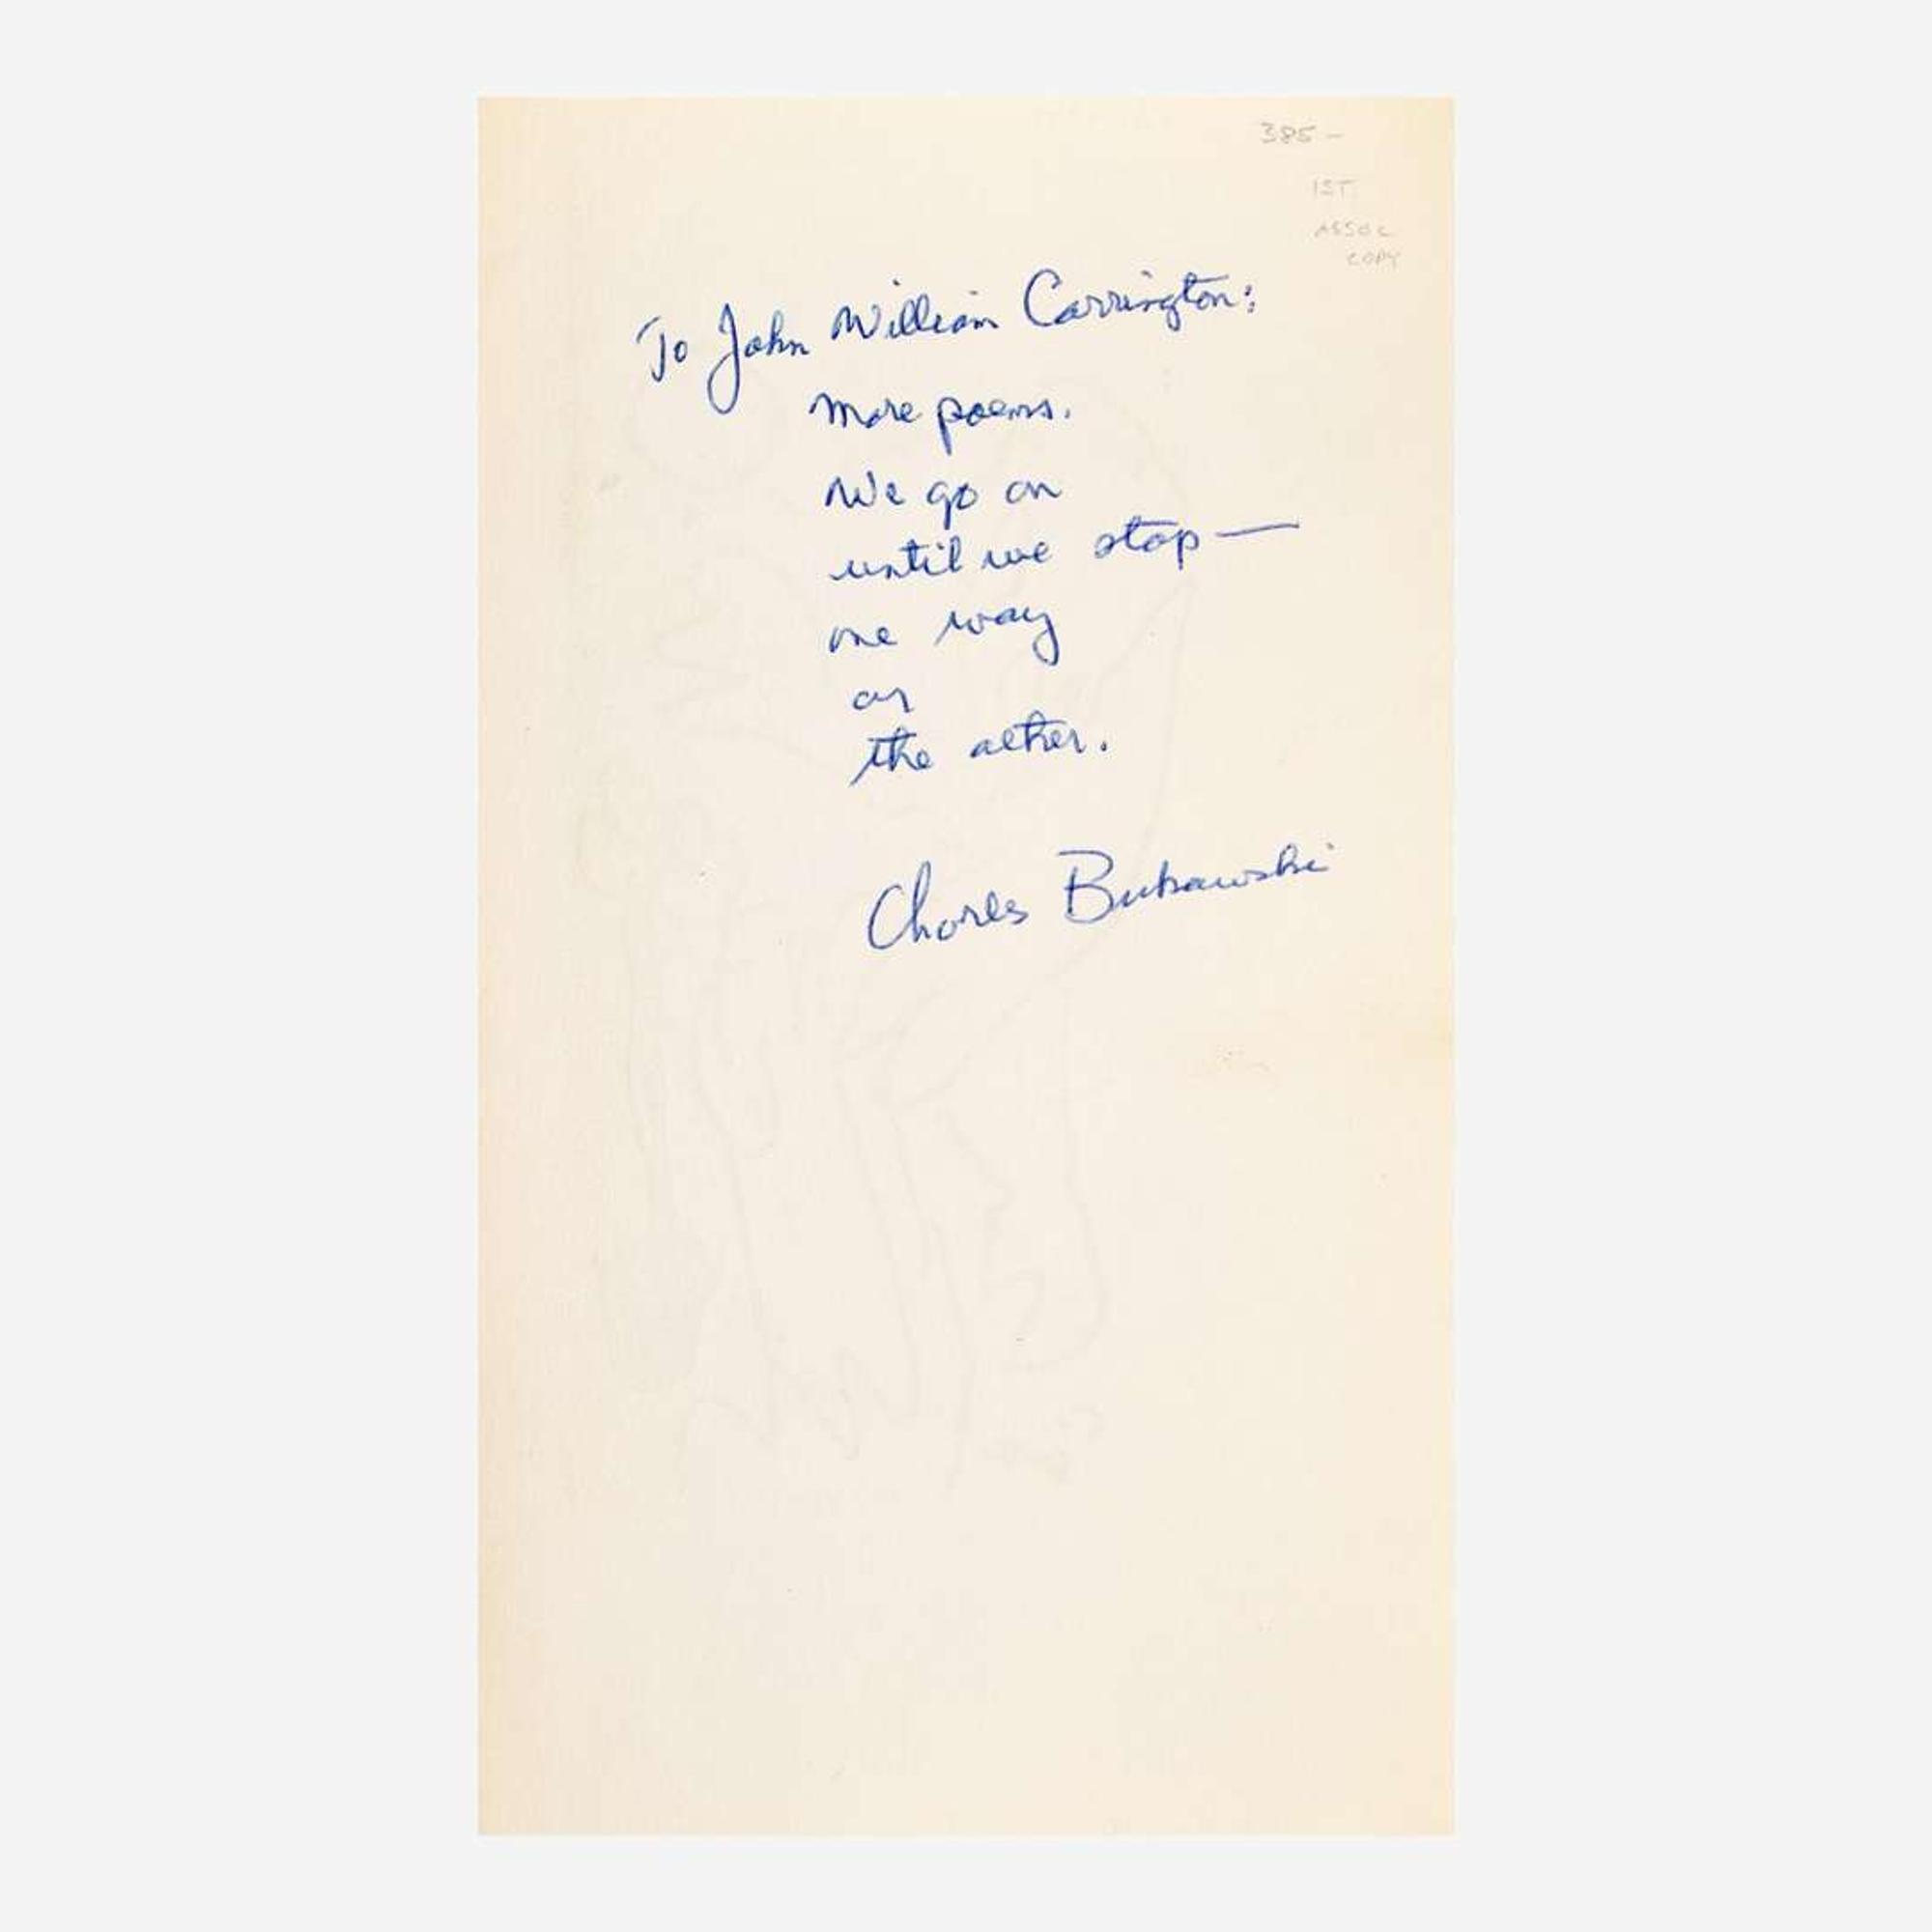 385-
1ST
ASSOC
COPY
To John William Carrington:
More poems.
We go on
until we stop—
one way
or
the other.
Charles Bukowski